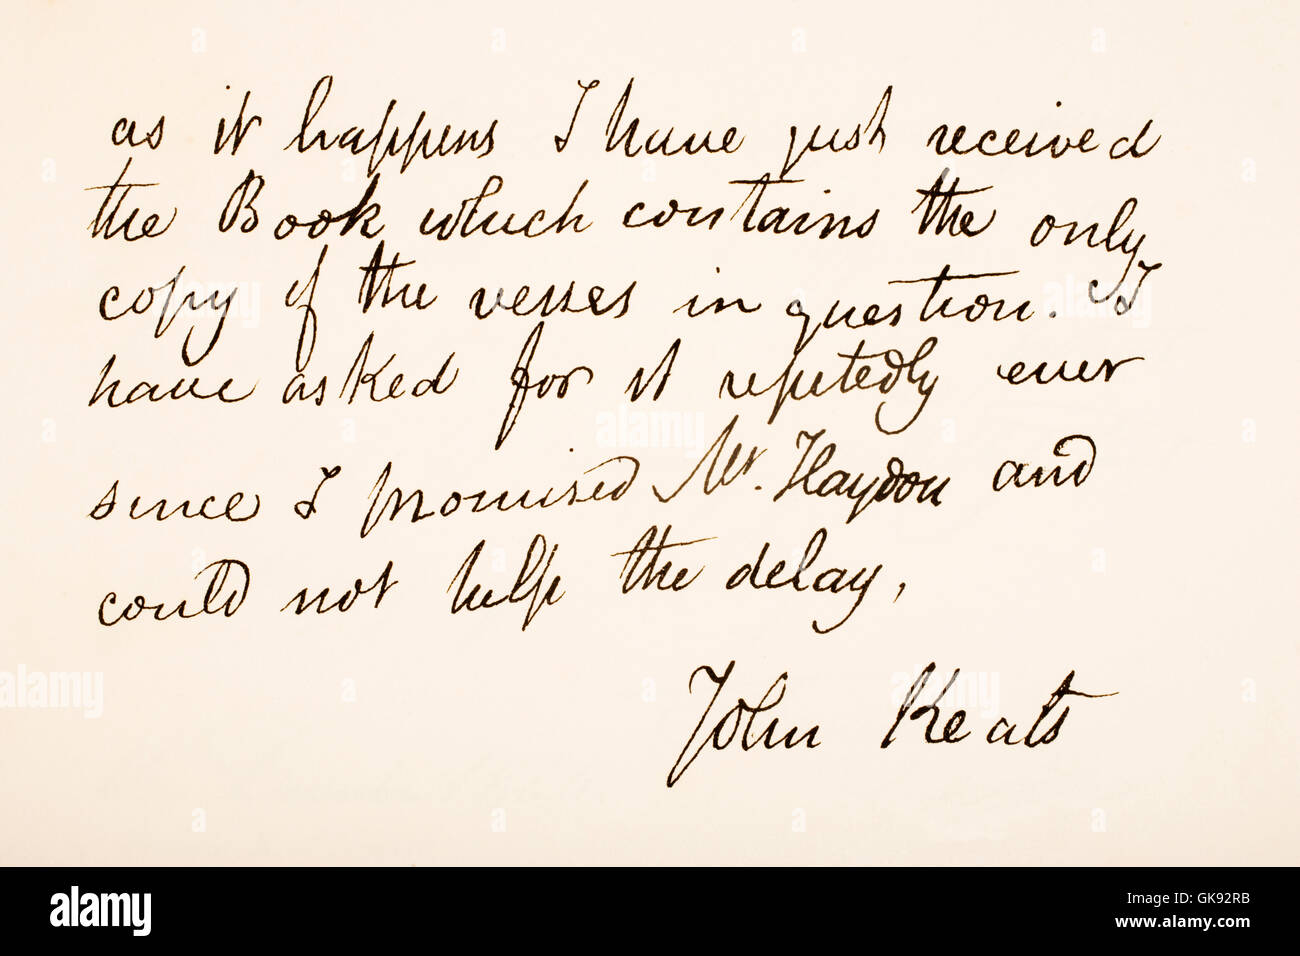 as it happens I have just received
the Book which contains the only
copy of the verses in question. I
have asked for it repetedly ever
since I promised Mr. Haydon and
could not help the delay,
John Keats
alamy
Image ID: GK92RB
www.alamy.com